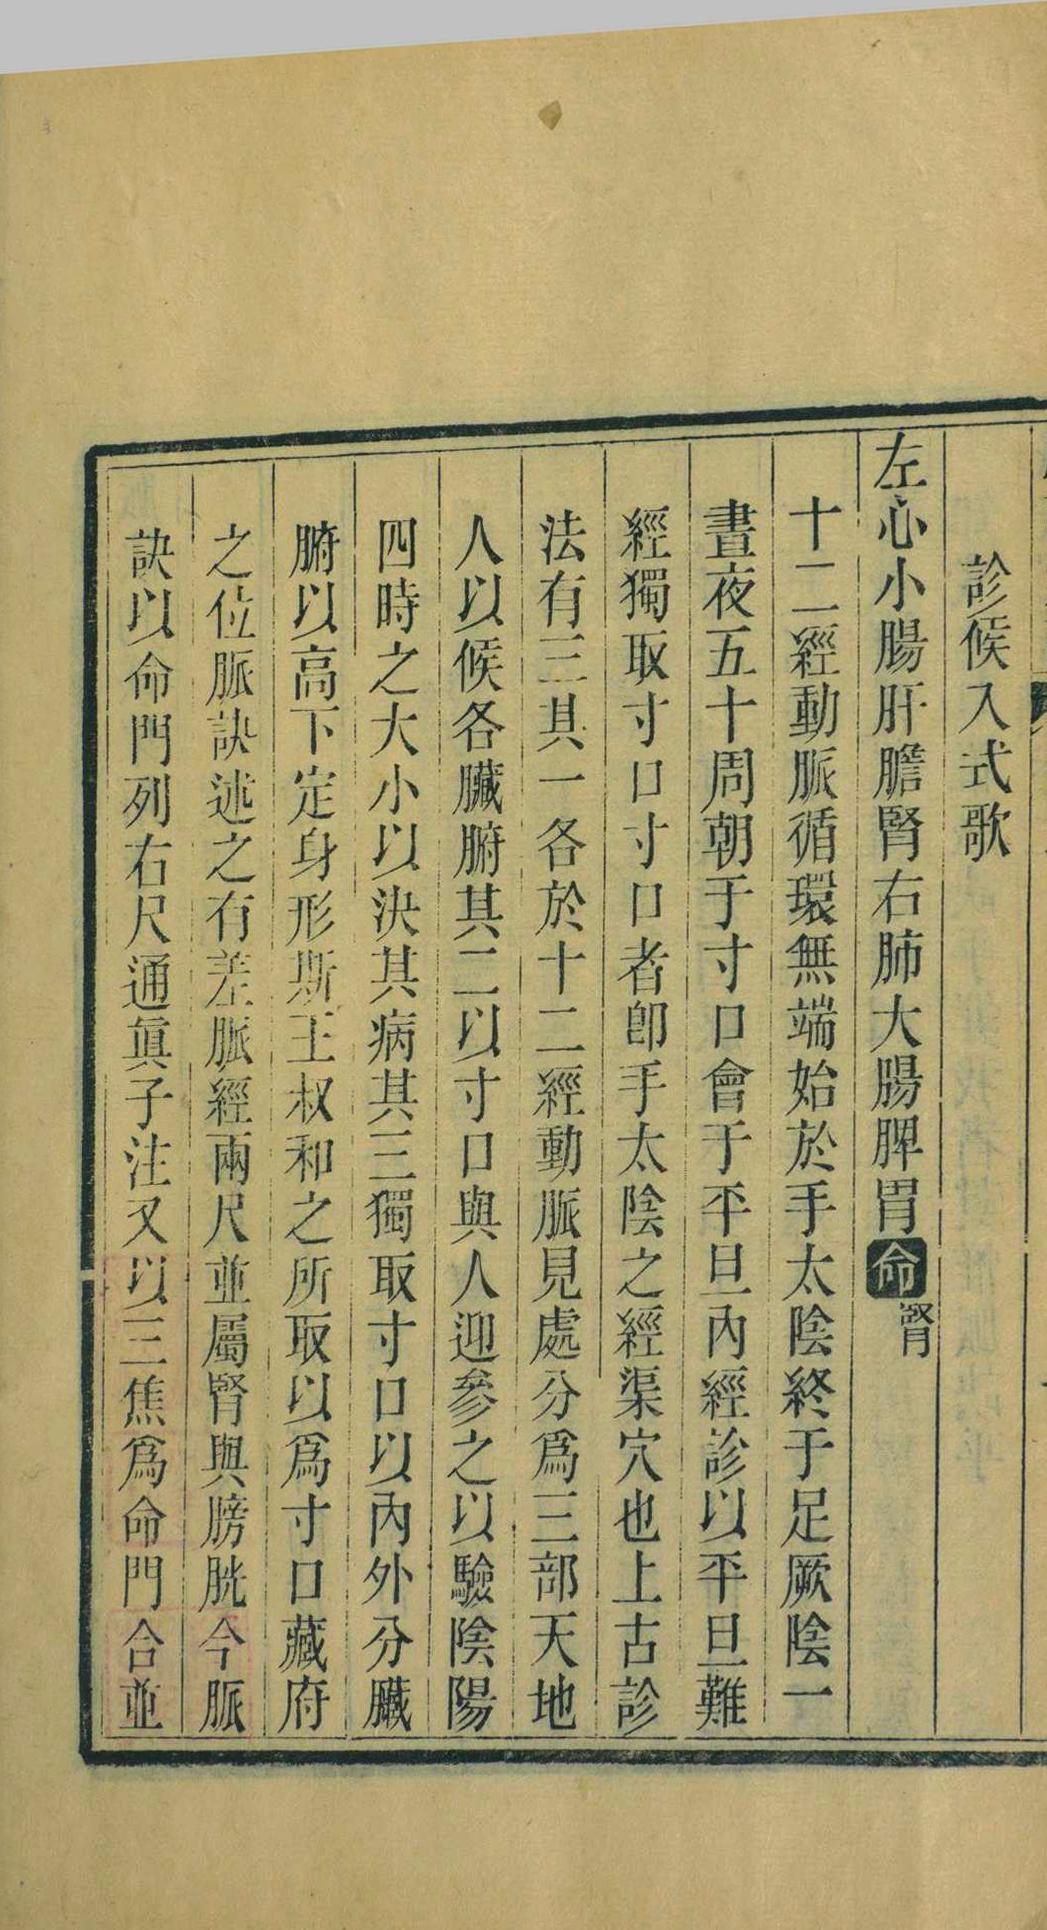 診候入式歌
左心小腸肝膽腎右肺大腸脾胃命腎
十二經動脈循環無端始於手太陰終于足厥陰一
晝夜五十周朝于寸口會于平旦內經診以平旦難
經獨取寸口寸口者卽手太陰之經渠穴也上古診
法有三其一各於十二經動脈見處分爲三部天地
人以候各臟腑其二以寸口與人迎參之以驗陰陽
四時之大小以決其病其三獨取寸口以內外分臟
腑以高下定身形斯王叔和之所取以爲寸口藏府
之位脈訣述之有差脈經兩尺並屬腎與膀胱今脈
訣以命門列右尺通眞子注又以三焦爲命門合並